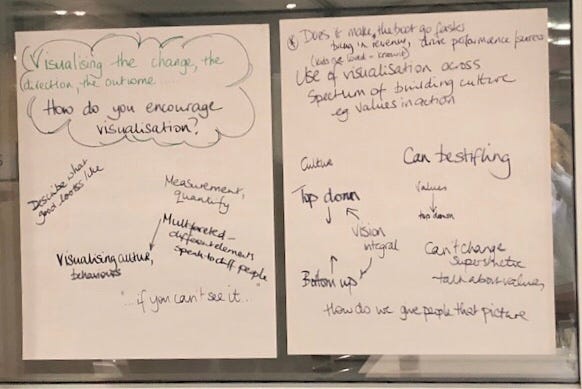 Visualising the change, the
direction, the outcome....
How do you encourage
visualisation?
Describe what
good looks like
Measurement,
quantify
Multifaceted -
different elements
speak to diff people
Visualising culture,
behaviours
"...if you can't see it..."
Does it make the boat go faster
bring in revenue, drive performance/success
Use of visualisation across
Spectrum of building culture
eg Values in action
Culture
Can be stifling
Top down
Values
top down
Vision
integral
Bottom up
Can't change
talk about values
How do we give people that picture